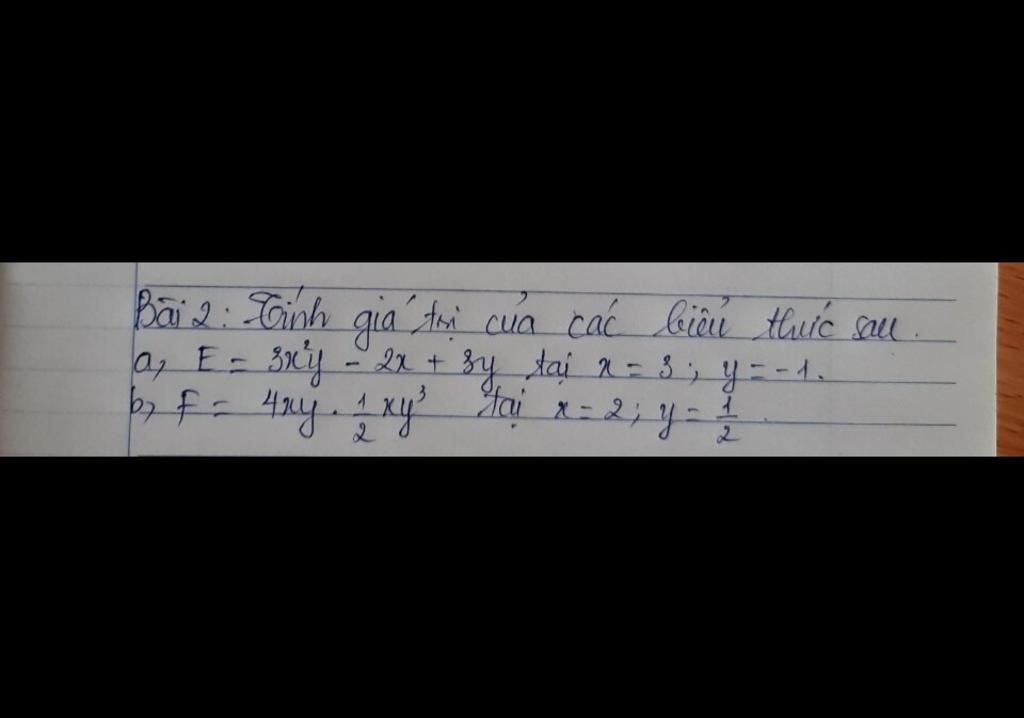 Bài 2: Tính giá trị của các biểu thức sau.
a, E = 3x²y - 2x + 3y tại x = 3; y = -1.
b, F = 4xy . 1/2 xy³ tại x = 2; y = 1/2